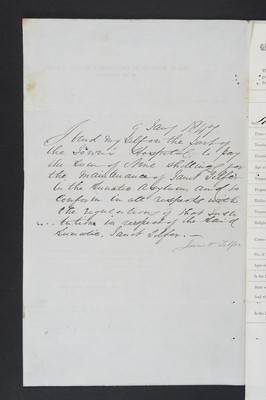 9 Jany 1847
I bind myself on the part of
the Town's Hospital to pay
the sum of Nine Shillings for
the maintenance of Janet Telfer
in the Lunatic Asylum and to
conform in all respects with
the regulations of that Insti
tution in respect of the said
Lunatic, Janet Telfer. —
Telfer